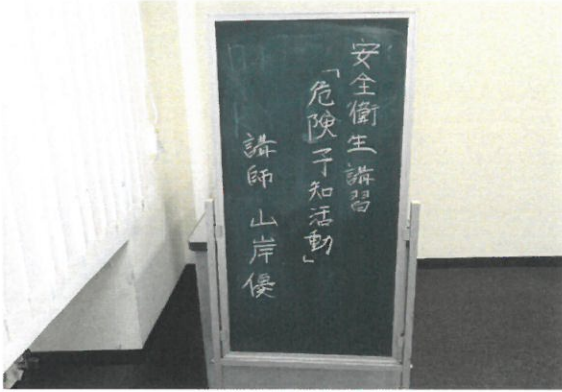 安全衛生講習
「危険予知活動」
講師 山岸優